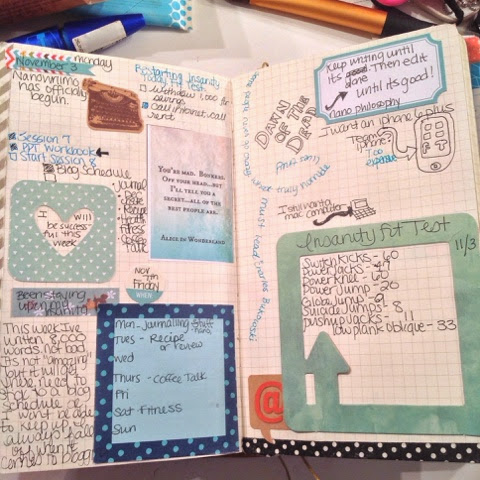 November 3
monday
Nanowrimo
has officially
begun.
Restarting Insanity
Today. Fit Test.
Withdraw 1,000 for
savings
Call internet Call
rent
Session 7
PPT Workbook
Start Session 8
Blog Schedule
- journal
- Dec
- Recipe
- Coffee
Talk
I will
be success
ful this
week
YOU'RE MAD. BONKERS.
OFF YOUR HEAD...BUT
I'LL TELL YOU A
SECRET...ALL OF THE
BEST PEOPLE ARE.
ALICE IN WONDERLAND
NOV
7th
Friday
WHEN
Been staying
up on
This week I've
written 8,000
words. not bad.
It's not "amazing"
but it will get
there. need to
stick to a blog
schedule. I
just can't be able
to keep up. I
always fall
off when it
comes to blogging
Mon - Journaling Stuff
nano
Tues - Recipe
or review
Wed
Thurs - Coffee Talk
Fri
Sat Fitness
Sun
Keep writing until
its done. Then edit
until its good!
nano philosophy
DAWN
OF THE
DEAD
I want an iphone 6 plus
Team
iphone
Too
expensive
must read: Charles Bukowski
I still want a
mac computer
Insanity Fit Test
11/3
Switch Kicks - 60
Power Jacks - 42
Power Knee - 70
Power Jump - 20
Globe Jump - 9
Suicide Jumps - 8
Pushup Jacks - 11
low plank oblique - 33
@